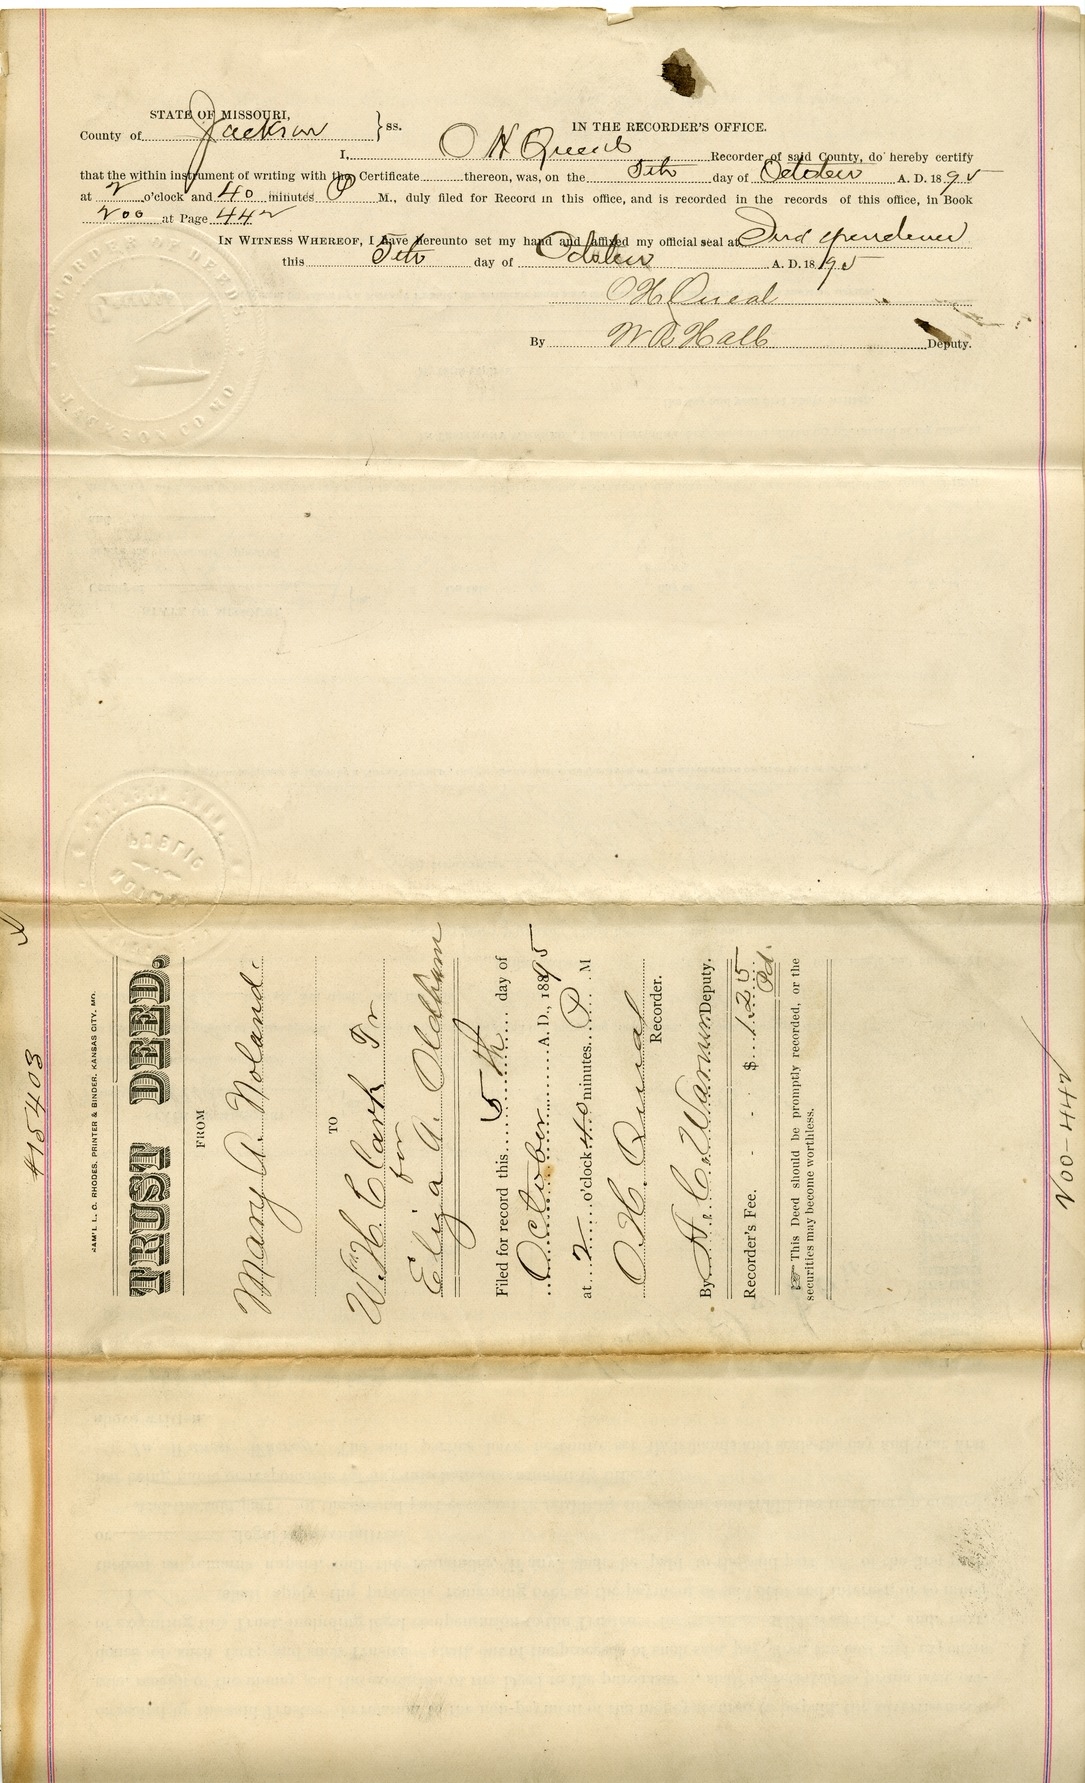 STATE OF MISSOURI,
County of Jackson } ss. IN THE RECORDER'S OFFICE.
I, O H Queal Recorder of said County, do hereby certify
that the within instrument of writing with the Certificate thereon, was, on the 5th day of October A. D. 1895
at 2 o'clock and 40 minutes P M., duly filed for Record in this office, and is recorded in the records of this office, in Book
200 at Page 442
IN WITNESS WHEREOF, I have hereunto set my hand and affixed my official seal at Independence
this 5th day of October A. D. 1895
O H Queal
By W R Hall Deputy.
RECORDER OF DEEDS
JACKSON CO MO
PUBLIC
NOTARY
#15403
SAM'L L. C. RHODES, PRINTER & BINDER, KANSAS CITY, MO.
TRUST DEED.
FROM
Mary A. Noland
TO
Wm. H. Clark Tr
for
Eliza A. Oldham
Filed for record this 5th day of
October A. D., 1895
at 2 o'clock 40 minutes P. M
O. H. Queal
Recorder.
By A. C. Warnum Deputy.
Recorder's Fee. - - $ 1.25
Pd.
☞ This Deed should be promptly recorded, or the
securities may become worthless.
200-442